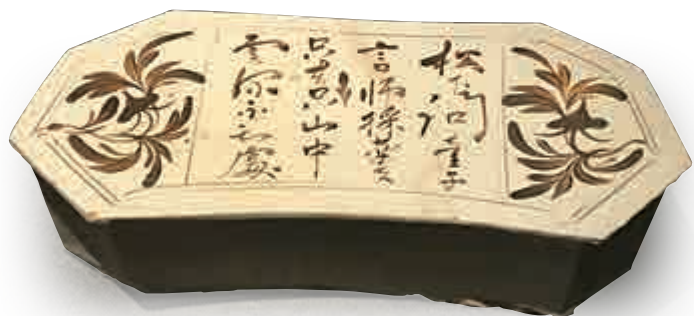 松下問童子
言師採藥去
只在此山中
雲深不知處